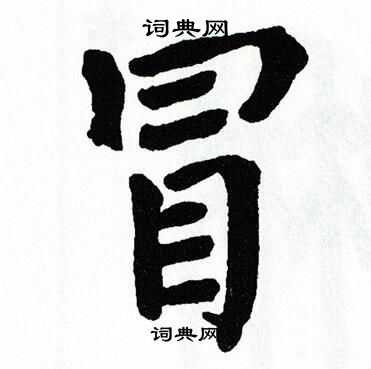 词典网
冒
词典网